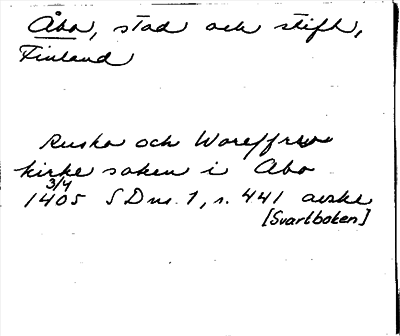 Åbo, stad och stift,
Finland
Rusko och Woreffrw
kirke soken i Abo
3/4
1405 SD ns. 1, s. 441 avskr
[Svartboken]